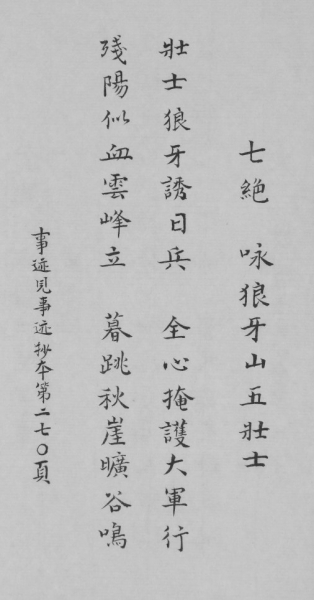 七絶　咏狼牙山五壯士
壯士狼牙誘日兵　全心掩護大軍行
殘陽似血雲峰立　暮跳秋崖曠谷鳴
事迹見事迹抄本第二七〇頁